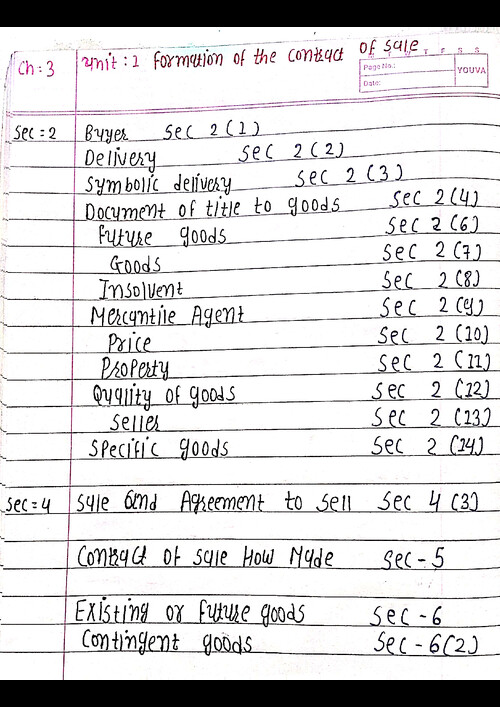 Ch:3 Unit:1 Formation of the contract of sale
M T W T F S S
Page No.:
Date:
YOUVA
Sec=2 Buyer Sec 2(1)
Delivery Sec 2(2)
Symbolic delivery Sec 2(3)
Document of title to goods Sec 2(4)
Future goods Sec 2(6)
Goods Sec 2(7)
Insolvent Sec 2(8)
Mercantile Agent Sec 2(9)
Price Sec 2(10)
Property Sec 2(11)
Quality of goods Sec 2(12)
Seller Sec 2(13)
Specific goods Sec 2(14)
Sec=4 Sale and Agreement to sell Sec 4(3)
Contract of sale How Made Sec-5
Existing or future goods Sec-6
Contingent goods Sec-6(2)